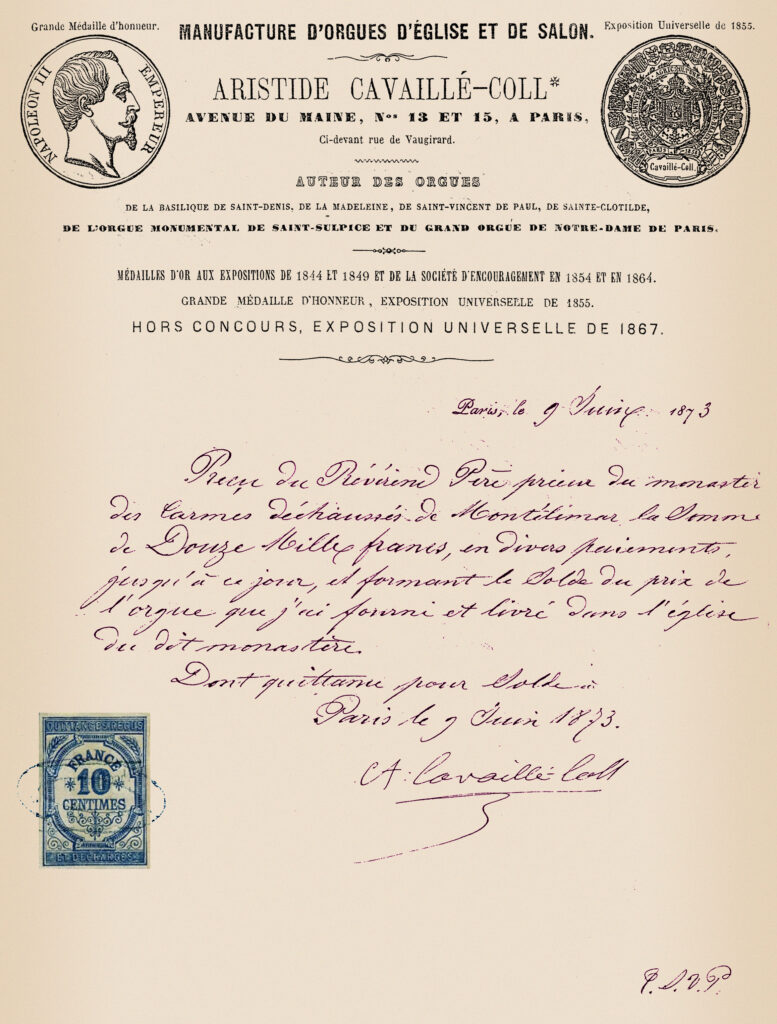 Grande Médaille d'honneur.
MANUFACTURE D'ORGUES D'ÉGLISE ET DE SALON.
Exposition Universelle de 1855.
NAPOLEON III EMPEREUR
ARISTIDE CAVAILLÉ-COLL*
AVENUE DU MAINE, Nos 13 ET 15, A PARIS,
Ci-devant rue de Vaugirard.
Cavaillé-Coll.
AUTEUR DES ORGUES
DE LA BASILIQUE DE SAINT-DENIS, DE LA MADELEINE, DE SAINT-VINCENT DE PAUL, DE SAINTE-CLOTILDE,
DE L'ORGUE MONUMENTAL DE SAINT-SULPICE ET DU GRAND ORGUE DE NOTRE-DAME DE PARIS.
MÉDAILLES D'OR AUX EXPOSITIONS DE 1844 ET 1849 ET DE LA SOCIÉTÉ D'ENCOURAGEMENT EN 1854 ET EN 1864.
GRANDE MÉDAILLE D'HONNEUR, EXPOSITION UNIVERSELLE DE 1855.
HORS CONCOURS, EXPOSITION UNIVERSELLE DE 1867.
Paris, le 9 Juin 1873
Reçu du Révérend Père prieur du monastèr
des Carmes déchaussés de Montélimar la Somme
de Douze Mille francs, en divers paiements,
jusqu'à ce jour, et formant le Solde du prix de
l'orgue que j'ai fourni et livré dans l'église
du dit monastère.
Dont quittance pour Solde à
Paris le 9 Juin 1873.
A. Cavaillé-Coll
QUITTANCES REÇUS
FRANCE
10
CENTIMES
ET DÉCHARGES
P.S.V.P.